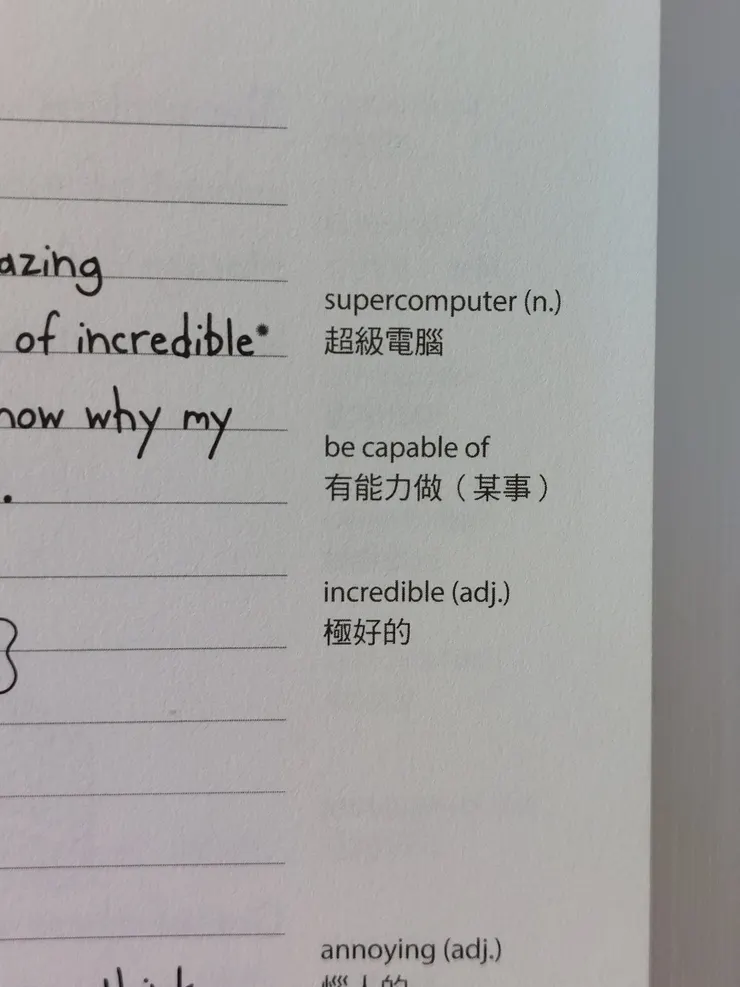 azing
of incredible*
now why my
.
think
supercomputer (n.)
超級電腦
be capable of
有能力做（某事）
incredible (adj.)
極好的
annoying (adj.)
惱人的